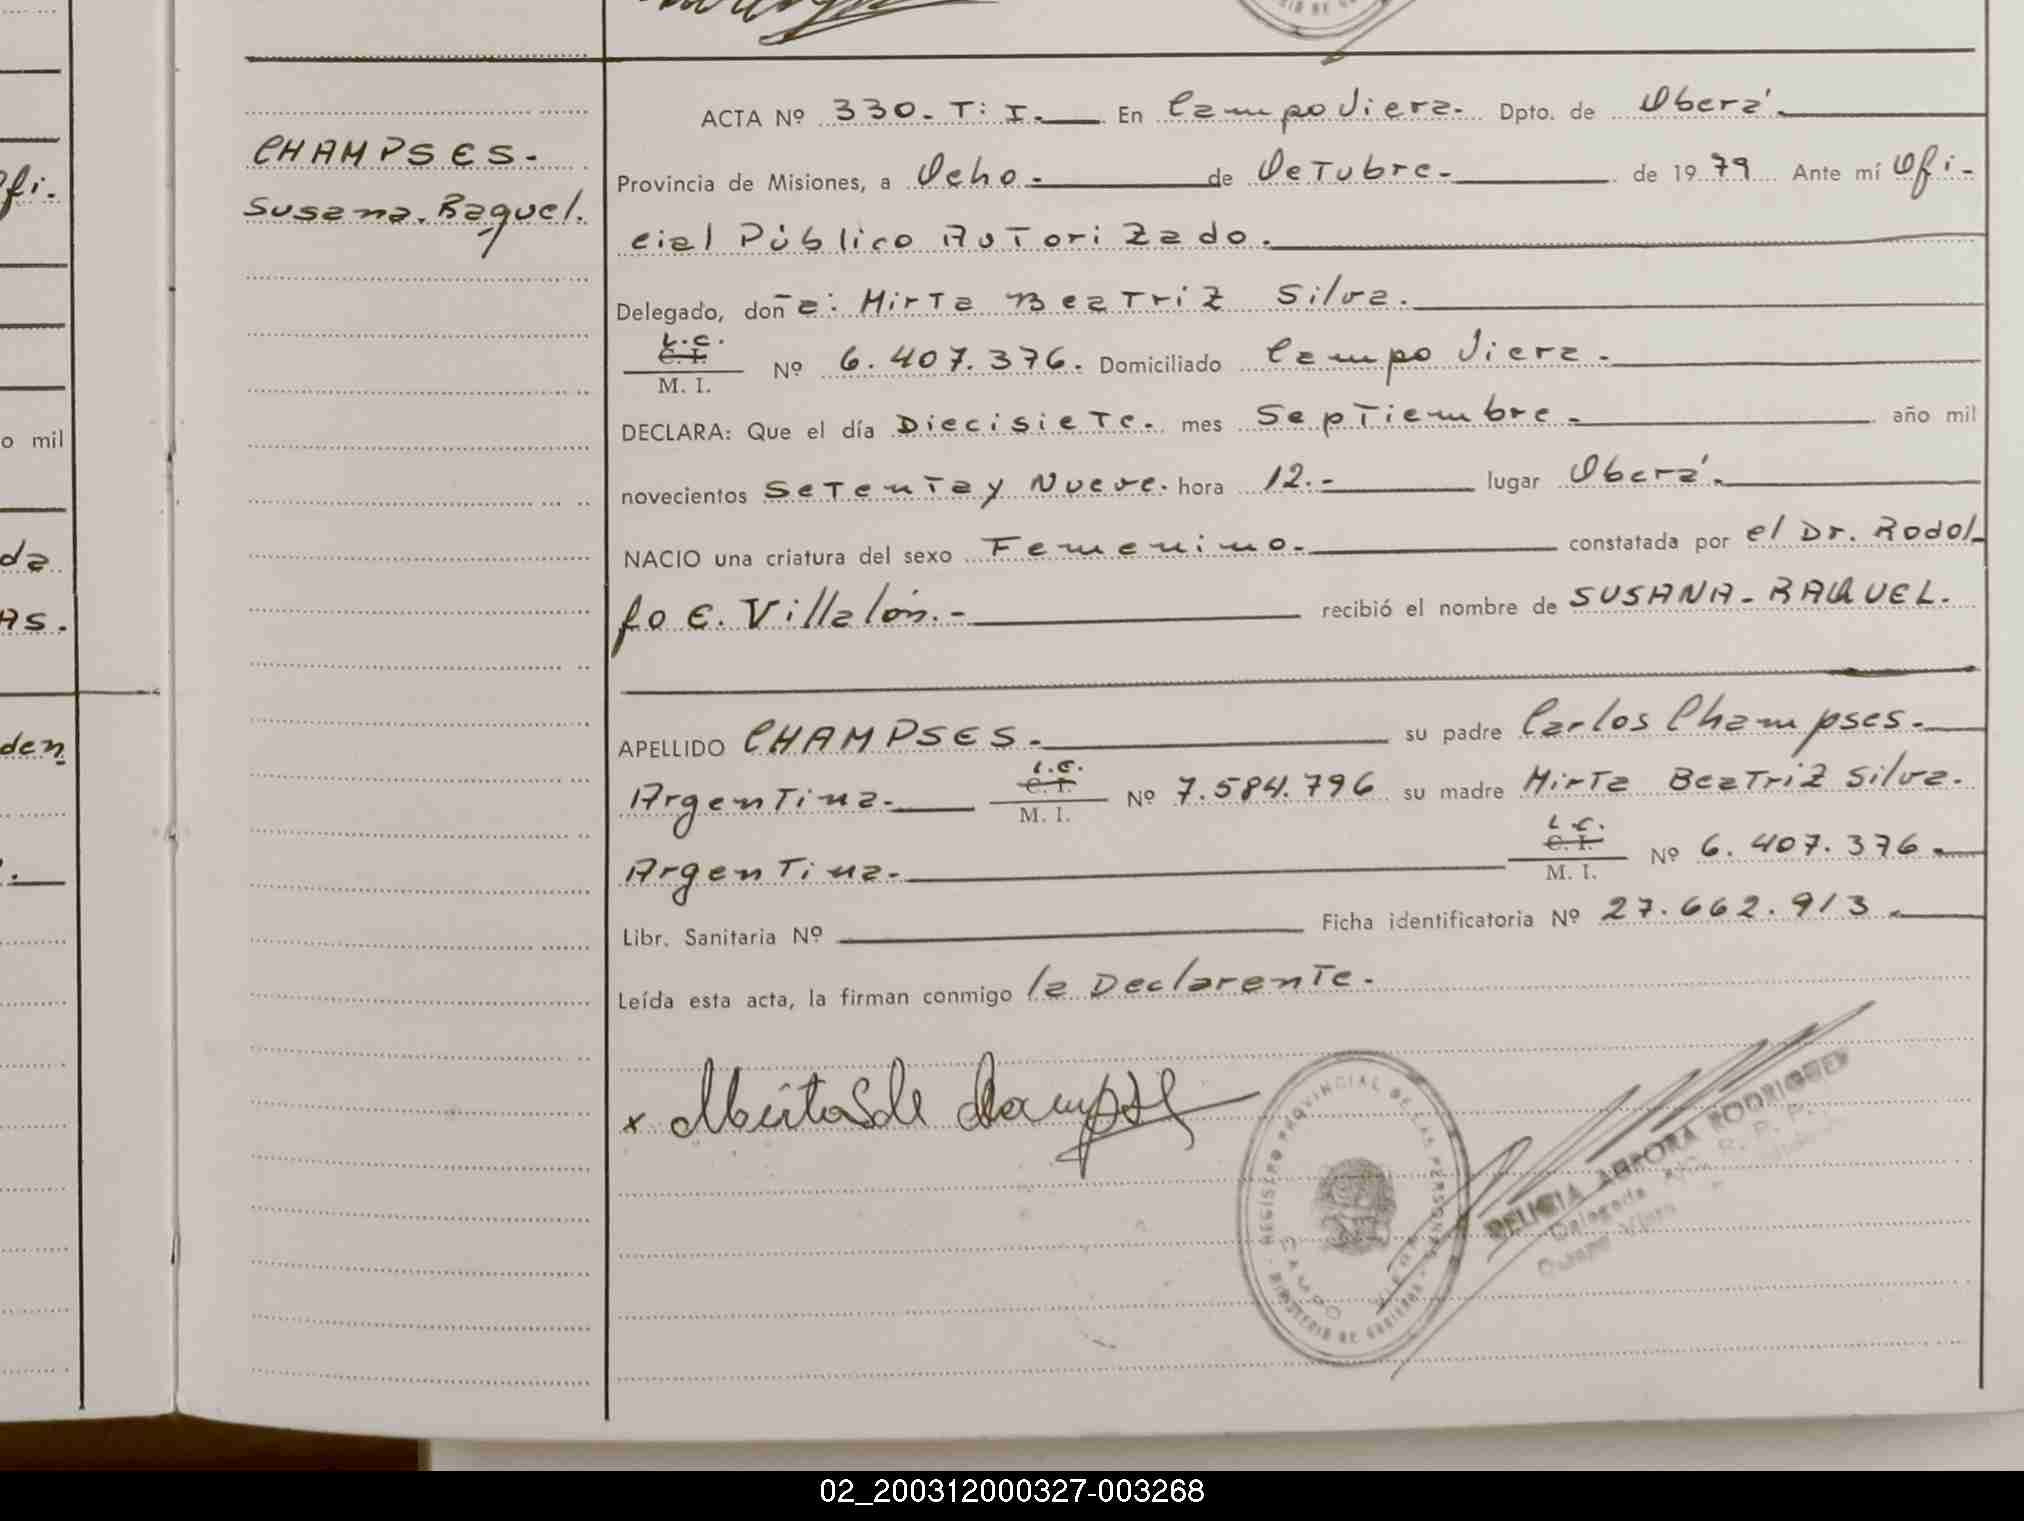 CHAMPSES.-
Susana. Raquel.
ACTA Nº 330.- T: I.- En Campo Viera.- Dpto. de Oberá.-
Provincia de Misiones, a Ocho.- de Octubre.- de 1979 Ante mí Ofi-
cial Público Autorizado.
Delegado, doña: Mirta Beatriz Silva.
L.C.
C. I.
M. I.
Nº 6.407.376. Domiciliado Campo Viera.-
DECLARA: Que el día Diecisiete. mes Septiembre.- año mil
novecientos Setenta y Nueve. hora 12.- lugar Oberá.-
NACIO una criatura del sexo Femenino.- constatada por el Dr. Rodol-
fo E. Villalón.- recibió el nombre de SUSANA-RAQUEL.
APELLIDO CHAMPSES.- su padre Carlos Champses.-
Argentina.- C. I. M. I. Nº 7.584.796 su madre Mirta Beatriz Silva.
Argentina.- L.C. C. I. M. I. Nº 6.407.376.-
Libr. Sanitaria Nº Ficha identificatoria Nº 27.662.913.-
Leída esta acta, la firman conmigo la Declarente.-
x
REGISTRO PROVINCIAL DE LAS PERSONAS
CAMPO VIERA
MINISTERIO DE GOBIERNO
DELICIA AURORA RODRIGUEZ
Delegada R. P. P.
Campo Viera
fi.
o mil
da
AS.
den
02_200312000327-003268